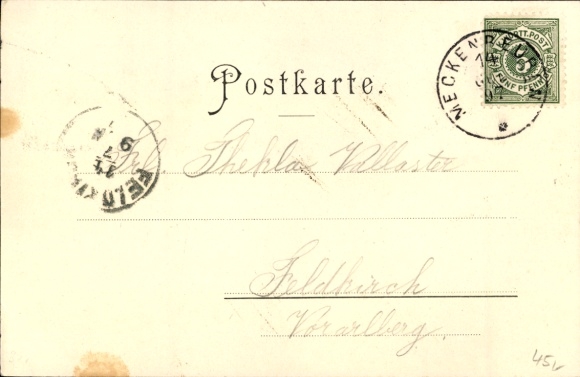 WÜRTT. POST
FÜNF PFENNIG
MECKENBEUREN
14
Postkarte.
FELDKIRCH
Frl Thekla Vallaster
Feldkirch
Vorarlberg.
45,-